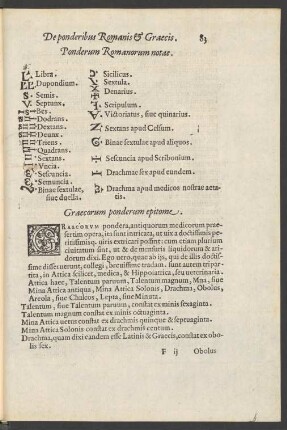 De ponderibus Romanis & Graecis. 83
Ponderum Romanorum notae.
Libra.
Dupondium.
S. Semis.
Septunx.
Bes.
Dodrans.
Dextans.
Deunx.
Triens.
Quadrans.
Sextans.
Vncia.
Sescuncia.
Semuncia.
Binae sextulae,
siue duella.
Sicilicus.
Sextula.
Denarius.
Scripulum.
Victoriatus, siue quinarius.
Sextans apud Celsum.
Binae sextulae apud aliquos.
Sescuncia apud Scribonium.
Drachmae sex apud eundem.
Drachma apud medicos nostrae aeta-
tis.
Graecorum ponderum epitome.
GRAECORVM pondera, antiquorum medicorum prae-
sertim opera, ita sunt intricata, ut uix a doctissimis pe-
ritissimisq; uiris extricari possint: cum etiam plurium
ciuitatum sint, ut & de mensuris liquidorum & ari-
dorum dixi. Ego uero, quae ab ijs, qui de illis doctis-
sime disseruerunt, collegi, breuissime tradam. sunt autem tripar-
tita, in Attica scilicet, medica, & Hippoiatrica, seu ueterinaria.
Attica haec, Talentum paruum, Talentum magnum, Mna, siue
Mina Attica antiqua, Mina Attica Solonis, Drachma, Obolus,
Areola, siue Chalcos, Lepta, siue Minuta.
Talentum, siue Talentum paruum, constat ex minis sexaginta.
Talentum magnum constat ex minis octuaginta.
Mina Attica uetus constat ex drachmis quinque & septuaginta.
Mina Attica Solonis constat ex drachmis centum.
Drachma, quam dixi eandem esse Latinis & Graecis, constat ex obo-
lis sex.
F ij Obolus